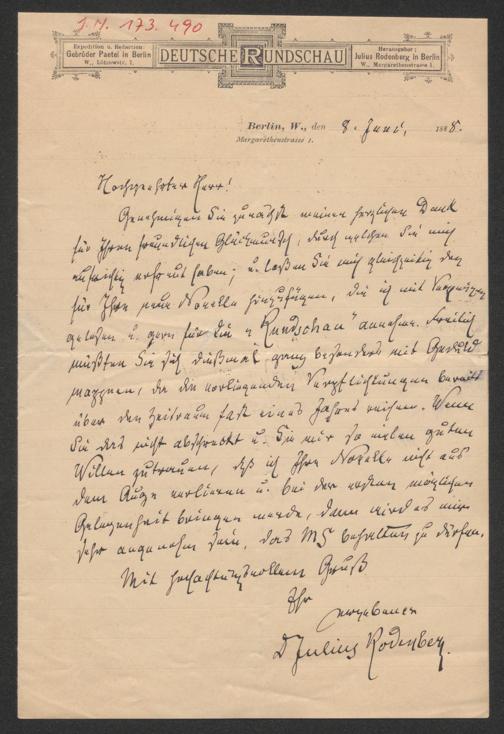 I. N. 173.490
Expedition u. Redaction:
Gebrüder Paetel in Berlin
W., Lützowstr. 7.
DEUTSCHE RUNDSCHAU
Herausgeber:
Julius Rodenberg in Berlin
W., Margarethenstrasse 1.
Berlin, W., den 8. Juni, 1888.
Margarethenstrasse 1.
Hochgeehrter Herr!
Genehmigen Sie zunächst meinen herzlichen Dank
für Ihren freundlichen Glückwunsch, durch welchen Sie mich
aufrichtig erfreut haben; u. laßen Sie mich gleichzeitig den
für Ihre neue Novelle hinzufügen, die ich mit Vergnügen
gelesen u. gern für die „Rundschau“ annehme. Freilich
müßten Sie sich dießmal ganz besonders mit Geduld
wappnen, da die vorliegenden Verpflichtungen bereits
über den Zeitraum fast eines Jahres reichen. Wenn
Sie das nicht abschreckt u. Sie mir so vielen guten
Willen zutrauen, daß ich Ihre Novelle nicht aus
dem Auge verlieren u. bei der ersten möglichen
Gelegenheit bringen werde, dann wird es mir
sehr angenehm sein, das MS behalten zu dürfen.
Mit hochachtungsvollem Gruß
Ihr
ergebener
Dr Julius Rodenberg.